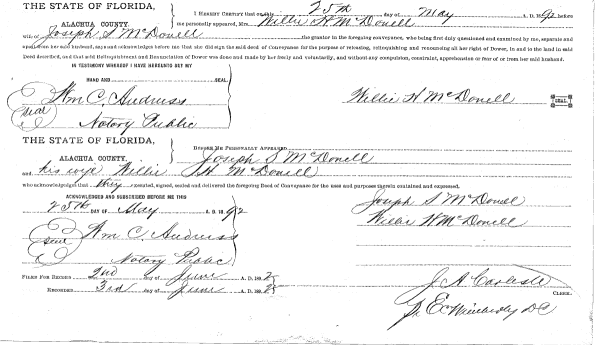 THE STATE OF FLORIDA,
ALACHUA COUNTY.
I HEREBY CERTIFY that on this 25th day of May A. D. 1892 before
me personally appeared, Mrs. Willie H McDonell
wife of Joseph S McDonell the grantor in the foregoing conveyance, who being first duly questioned and examined by me, separate and
apart from her said husband, says and acknowledges before me that she did sign the said deed of Conveyance for the purpose of releasing, relinquishing and renouncing all her right of Dower, in and to the land in said
Deed described, and that said Relinquishment and Renunciation of Dower was done and made by her freely and voluntarily, and without any compulsion, constraint, apprehension or fear of or from her said husband.
IN TESTIMONY WHEREOF I HAVE HEREUNTO SET MY
HAND AND SEAL.
Wm C. Andruss
Seal
Notary Public
Willie H McDonell SEAL.
THE STATE OF FLORIDA,
ALACHUA COUNTY.
BEFORE ME PERSONALLY APPEARED Joseph S McDonell
and his wife Willie H McDonell
who acknowledged that they executed, signed, sealed and delivered the foregoing Deed of Conveyance for the uses and purposes therein contained and expressed.
ACKNOWLEDGED AND SUBSCRIBED BEFORE ME THIS
25th DAY OF May A. D. 1892
Wm C. Andruss
Seal
Notary Public
Joseph S McDonell
Willie H McDonell
FILED FOR RECORD 2nd day of June A. D. 189
RECORDED 3rd day of June A. D. 189
J A Carlisle CLERK.
DC